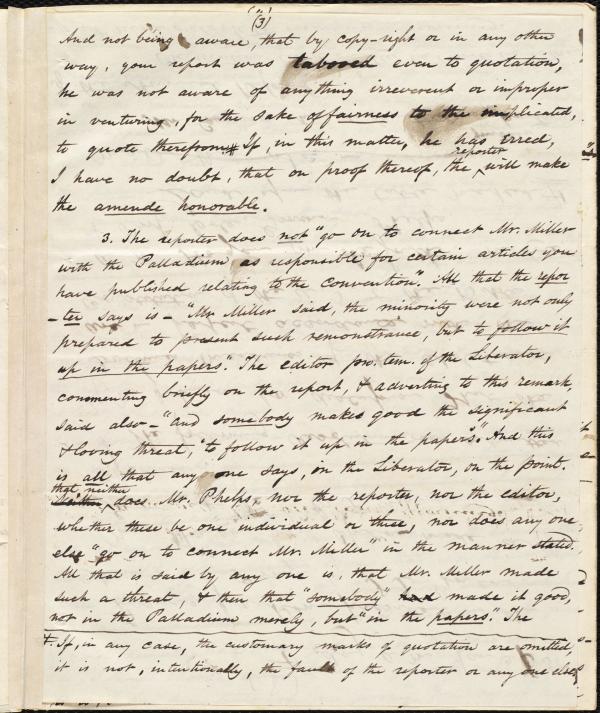 (3)
And not being aware, that by copy-right or in any other
way, your report was tabooed even to quotation,
he was not aware of anything irreverent or improper
in venturing, for the sake of fairness to the implicated,
to quote therefrom.* If, in this matter, he has erred,
I have no doubt, that on proof thereof, the reporter will make
the amende honorable.
3. The reporter does not "go on to connect Mr. Miller
with the Palladium as responsible for certain articles you
have published relating to the convention". All that the repor-
-ter says is – "Mr. Miller said, the minority were not only
prepared to present such remonstrance, but to follow it
up in the papers". The editor pro. tem. of the Liberator,
commenting briefly on the report, & adverting to this remark,
said also – "and somebody makes good the significant
& loving threat, 'to follow it up in the papers'." And this
is all that any one says, in the Liberator, on the point.
that neither does Mr. Phelps, nor the reporter, nor the editor,
whether these be one individual or three, nor does any one
else "go on to connect Mr. Miller" in the manner stated.
All that is said by any one is, that Mr. Miller made
such a threat, & then that "somebody" had made it good,
not in the Palladium merely, but "in the papers". The
*. If, in any case, the customary marks of quotation are omitted,
it is not, intentionally, the fault of the reporter or any one else.